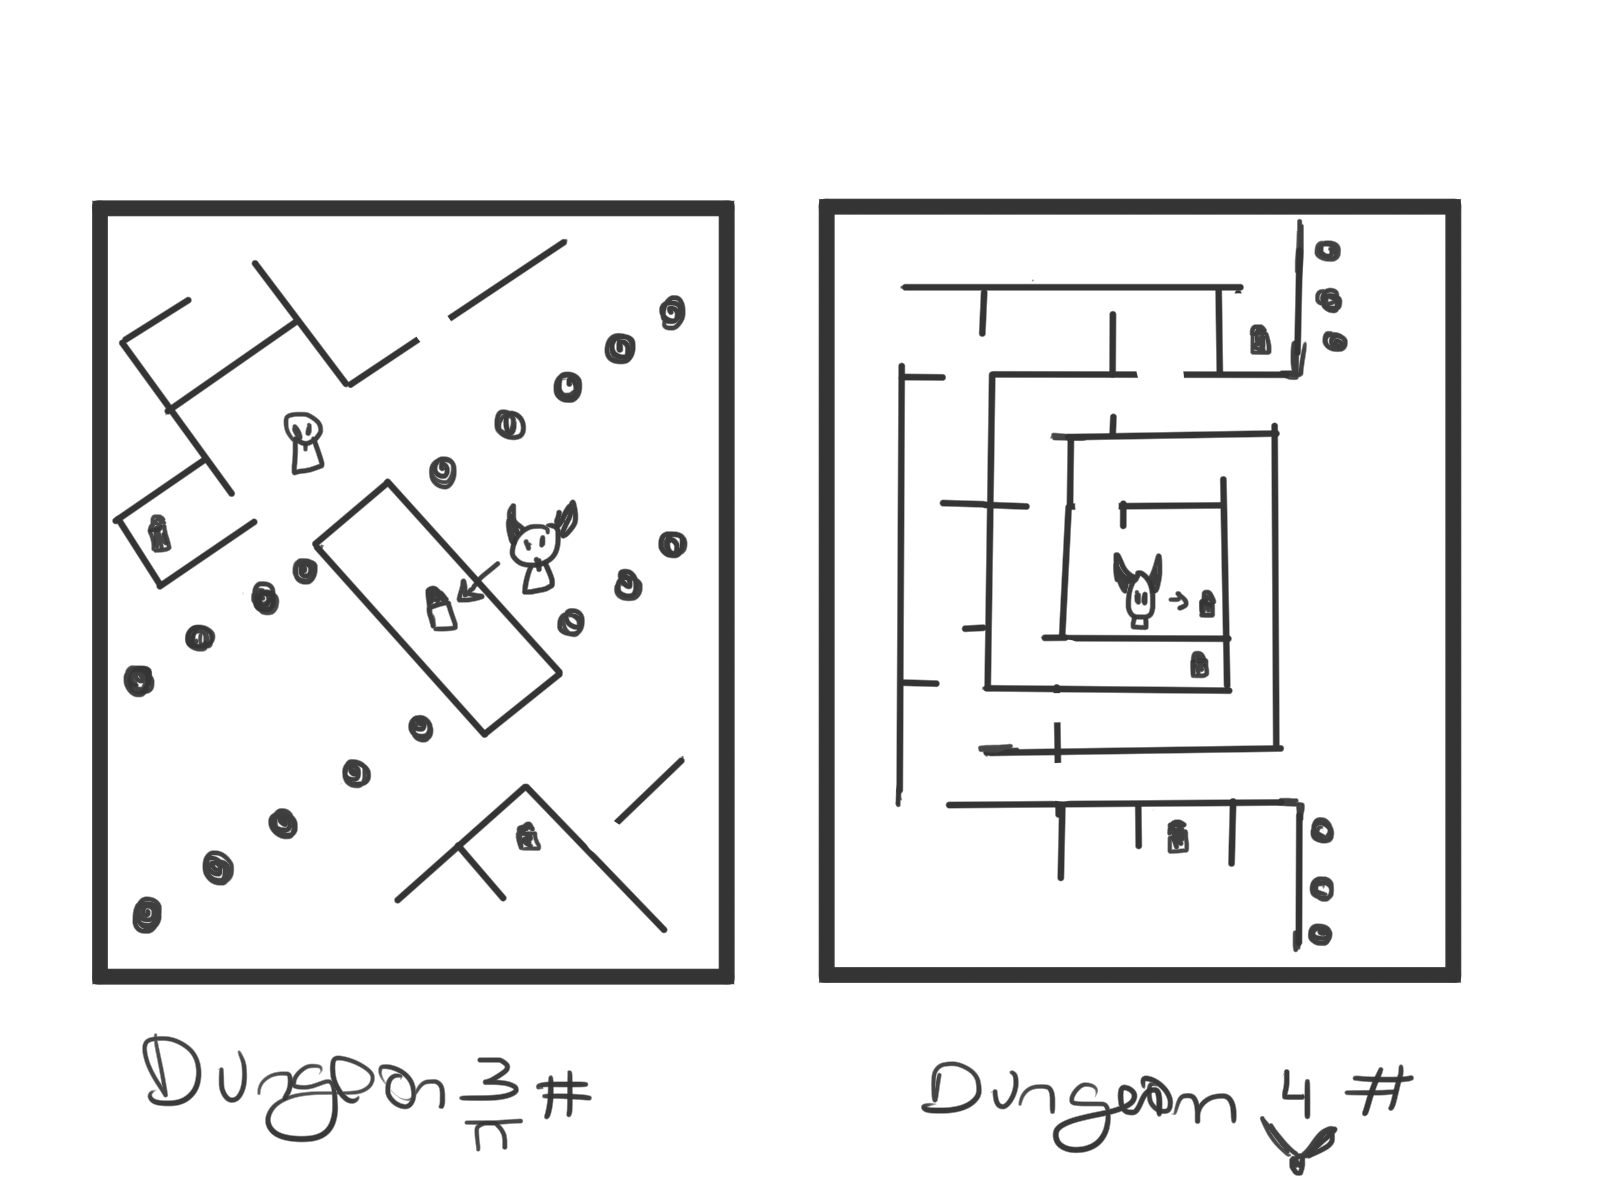 Dungeon 3 #
Dungeon 4 #